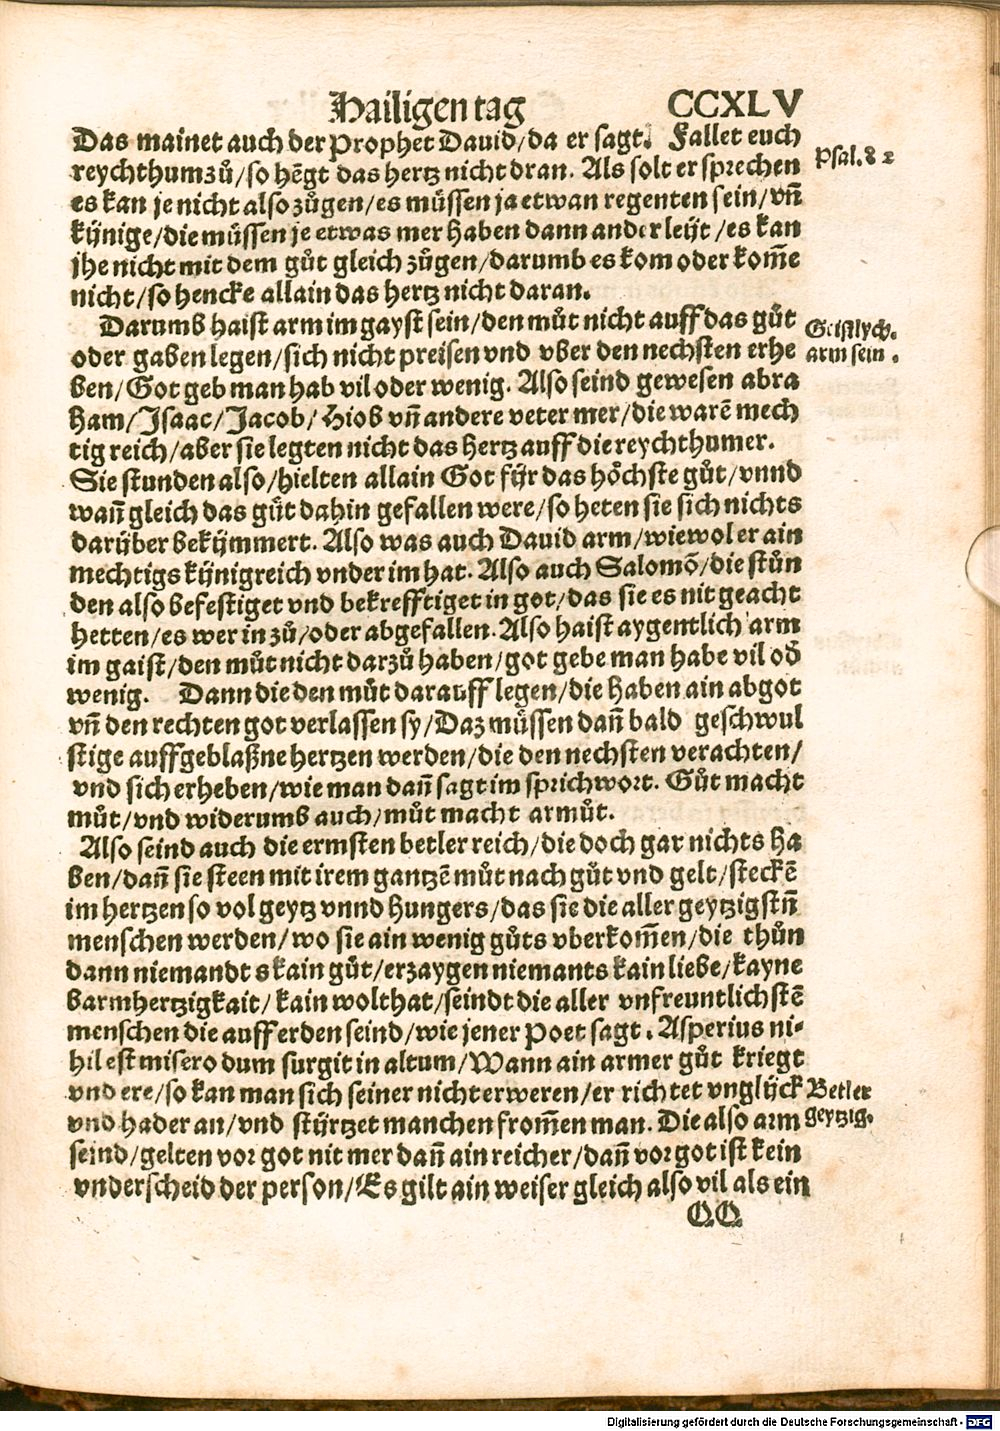 Hailigen tag CCXLV
Das mainet auch der Prophet Dauid/da er sagt. Fallet euch
reychthum zů/so hẽgt das hertz nicht dran. Als solt er sprechen
es kan je nicht also zůgen/es müssen ja etwan regenten sein/vñ
kijnige/die müssen je etwas mer haben dann ander leijt/es kan
jhe nicht mit dem gůt gleich zůgen/darumb es kom oder kom̃e
nicht/so hencke allain das hertz nicht daran.
Psal.82
Darumb haist arm im gayst sein/den můt nicht auff das gůt
oder gaben legen/sich nicht preisen vnd vber den nechsten erhe
ben/Got geb man hab vil oder wenig. Also seind gewesen abra
ham/Isaac/Jacob/Hiob vñ andere veter mer/die warẽ mech
tig reich/aber sie legten nicht das hertz auff die reychthumer.
Sie stunden also/hielten allain Got fijr das höchste gůt/vnnd
wañ gleich das gůt dahin gefallen were/so heten sie sich nichts
darijber bekijmmert. Also was auch Dauid arm/wiewol er ain
mechtigs kijnigreich vnder im hat. Also auch Salomõ/die stůn
den also befestiget vnd bekrefftiget in got/das sie es nit geacht
hetten/es wer in zů/oder abgefallen. Also haist aygentlich arm
im gaist/den můt nicht darzů haben/got gebe man habe vil oď
wenig. Dann die den můt darauff legen/die haben ain abgot
vñ den rechten got verlassen sy/Daz müssen dañ bald geschwul
stige auffgeblaßne hertzen werden/die den nechsten verachten/
vnd sich erheben/wie man dañ sagt im sprichwort. Gůt macht
můt/vnd widerumb auch/můt macht armůt.
Geistlych.
arm sein.
Also seind auch die ermsten betler reich/die doch gar nichts ha
ben/dañ sie steen mit irem gantzẽ můt nach gůt vnd gelt/steckẽ
im hertzen so vol geytz vnnd hungers/das sie die aller geytzigstñ
menschen werden/wo sie ain wenig gůts vberkom̃en/die thůn
dann niemandts kain gůt/erzaygen niemants kain liebe/kayne
barmhertzigkait/kain wolthat/seindt die aller vnfreuntlichstẽ
menschen die auff erden seind/wie jener Poet sagt. Asperius ni-
hil est misero dum surgit in altum/Wann ain armer gůt kriegt
vnd ere/so kan man sich seiner nicht erweren/er richtet vnglijck
vnd hader an/vnd stijrtzet manchen from̃en man. Die also arm
seind/gelten vor got nit mer dañ ain reicher/dañ vor got ist kein
vnderscheid der person/Es gilt ain weiser gleich also vil als ein
Betler
geytzig.
QQ
Digitalisierung gefördert durch die Deutsche Forschungsgemeinschaft - DFG